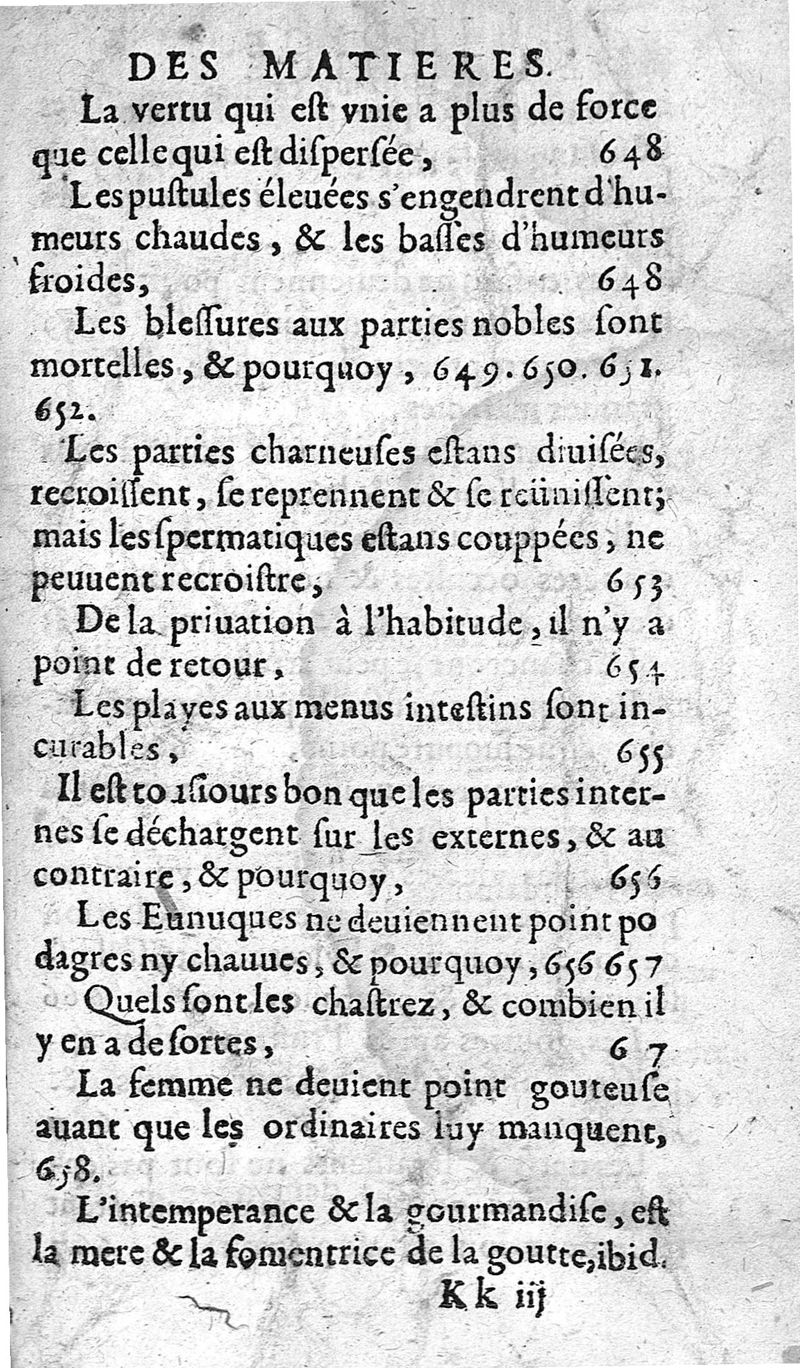 DES MATIERES.
La vertu qui eſt vnie a plus de force
que celle qui eſt diſperſée, 648
Les puſtules éleuées s'engendrent d'hu-
meurs chaudes, & les baſſes d'humeurs
froides, 648
Les bleſſures aux parties nobles ſont
mortelles, & pourquoy, 649. 650. 651.
652.
Les parties charneuſes eſtans diuiſées,
recroiſſent, ſe reprennent & ſe reüniſſent;
mais les ſpermatiques eſtans couppées, ne
peuuent recroiſtre, 653
De la priuation à l'habitude, il n'y a
point de retour, 654
Les playes aux menus inteſtins ſont in-
curables, 655
Il eſt touſiours bon que les parties inter-
nes ſe déchargent ſur les externes, & au
contraire, & pourquoy, 656
Les Eunuques ne deuiennent point po
dagres ny chauues, & pourquoy, 656 657
Quels ſont les chaſtrez, & combien il
y en a de ſortes, 6 7
La femme ne deuient point gouteuſe
auant que les ordinaires luy manquent,
658.
L'intemperance & la gourmandiſe, eſt
la mere & la fomentrice de la goutte, ibid.
Kk iij